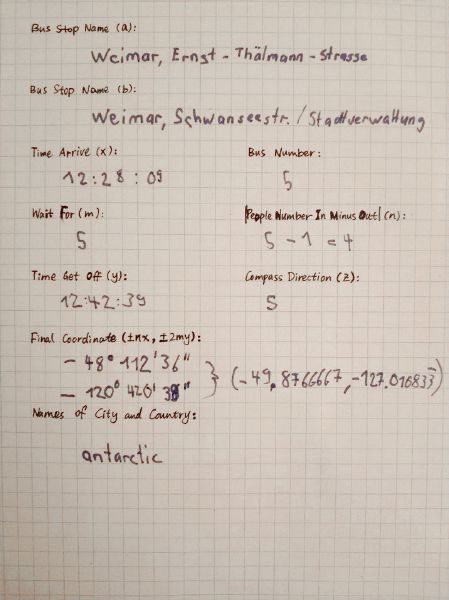 Bus Stop Name (a):
Weimar, Ernst - Thälmann - Strasse
Bus Stop Name (b):
Weimar, Schwanseestr. / Stadtverwaltung
Time Arrive (x):
Bus Number:
12:28:09
5
Wait For (m):
|People Number In Minus Out| (n):
5
5 - 1 = 4
Time Get Off (y):
Compass Direction (z):
12:42:39
5
Final Coordinate (±nx, ±2my):
- 48° 112' 36"
- 120° 420' 39" } (-49.8766667, -127.016833)
Names of City and Country:
antarctic